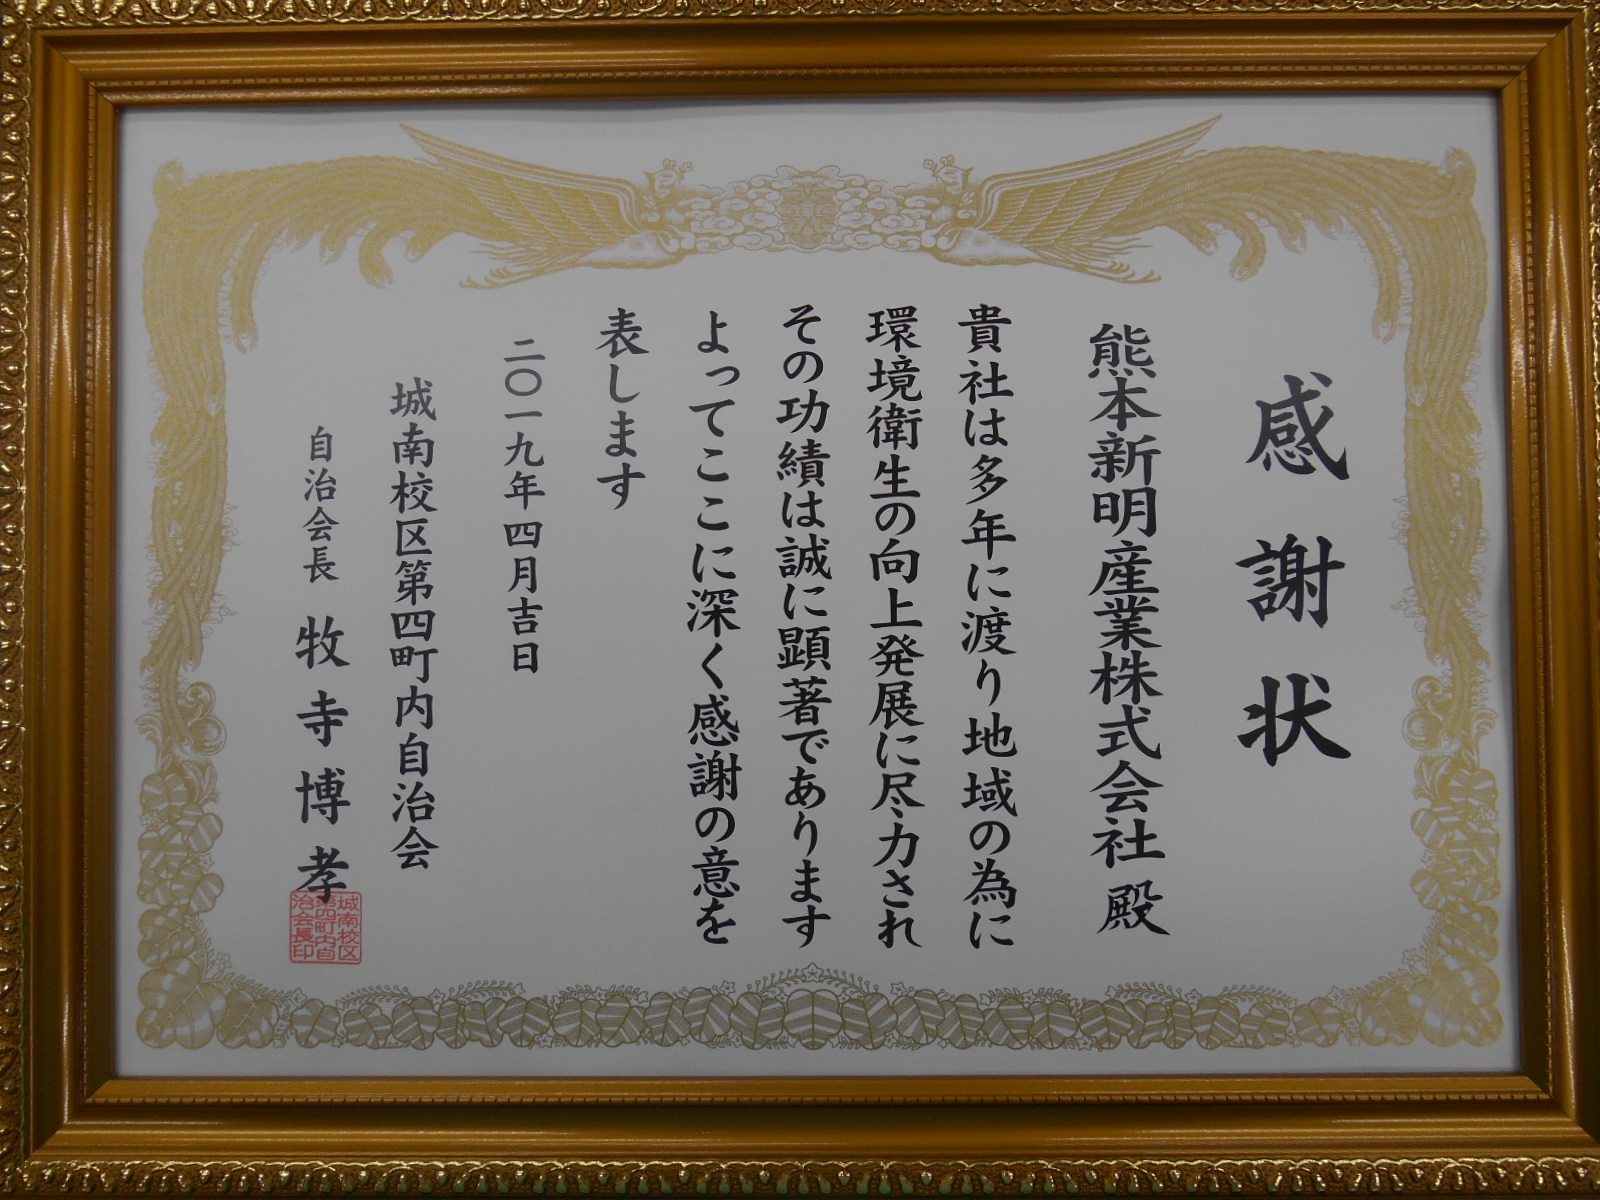 感謝状
熊本新明産業株式会社殿
貴社は多年に渡り地域の為に
環境衛生の向上発展に尽力され
その功績は誠に顕著であります
よってここに深く感謝の意を
表します
二〇一九年四月吉日
城南校区第四町内自治会
自治会長 牧寺博孝
城南校区
第四町内自
治会長印